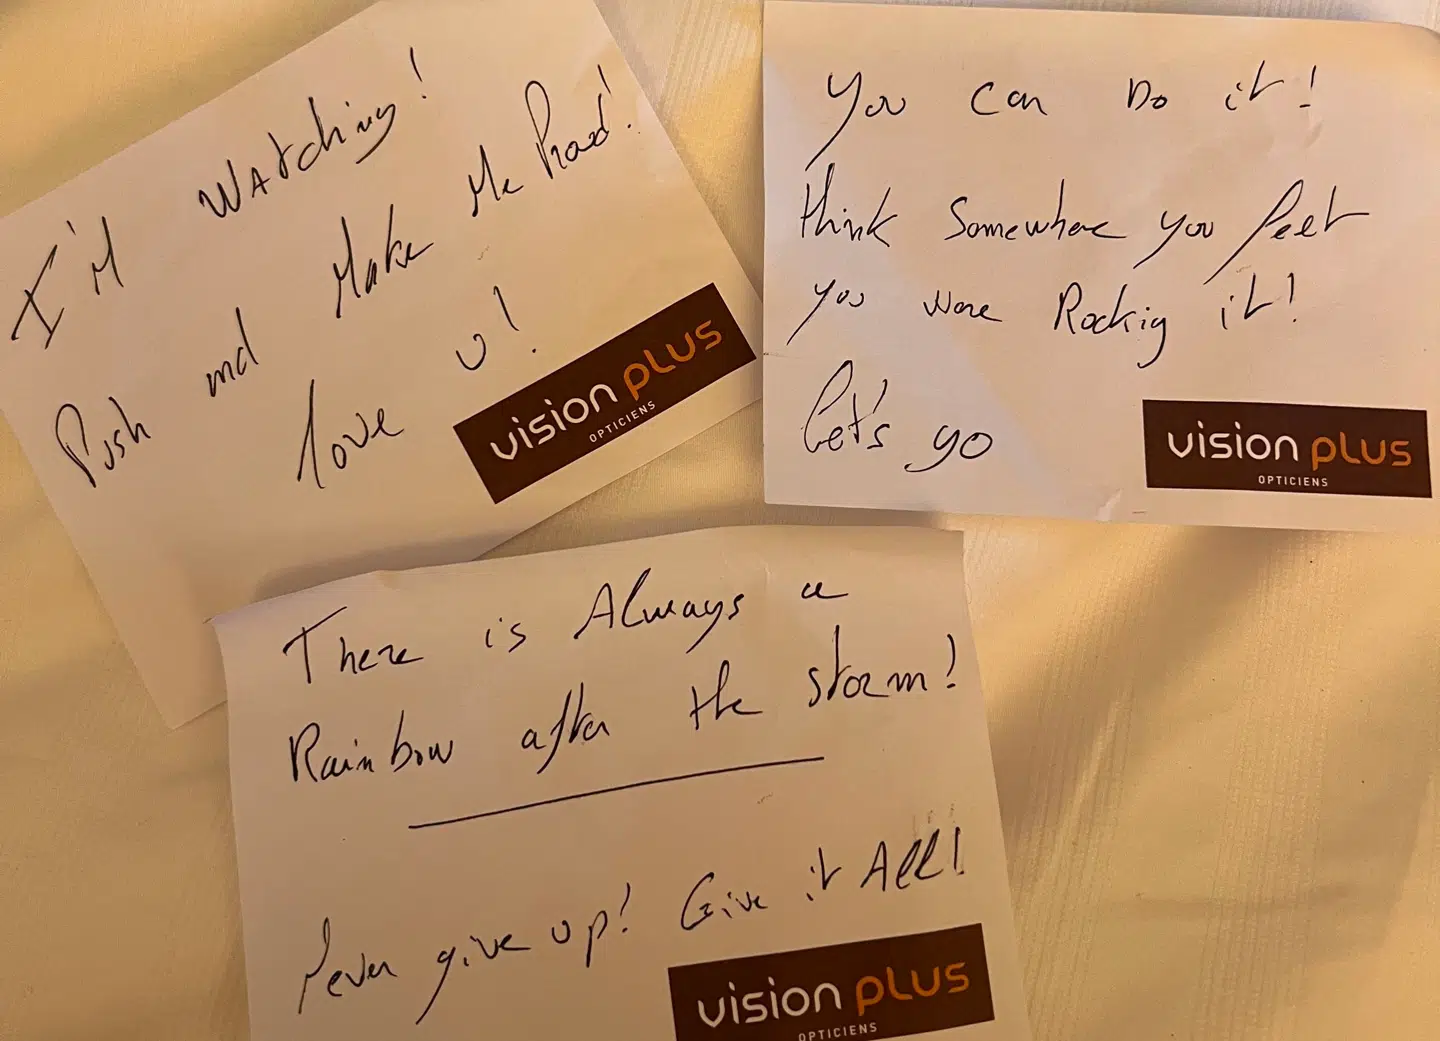 I'M WAtching!
Push and Make Me Proud!
love u!
vision plus
OPTICIENS
You can Do it!
think Somewhere you feel
you were Rockig it!
let's go
vision plus
OPTICIENS
There is Always a
Rainbow after the storm!
Never give up! Give it All!
vision plus
OPTICIENS